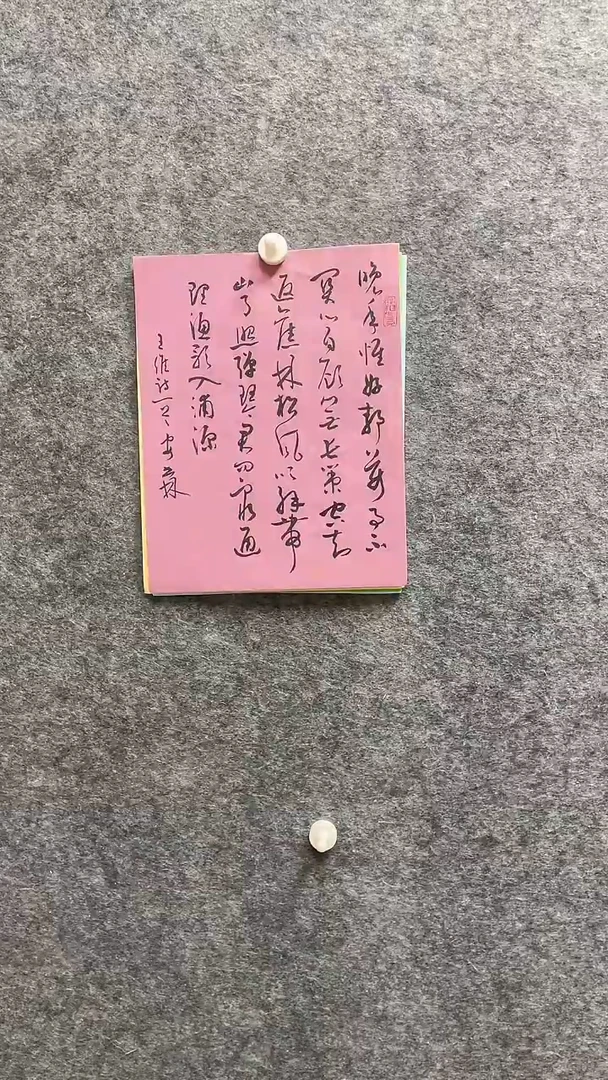 晚年惟好静万事不
关心自顾无长策空知
返旧林松风吹解带
山月照弹琴君问穷通
理渔歌入浦深
王维诗一首